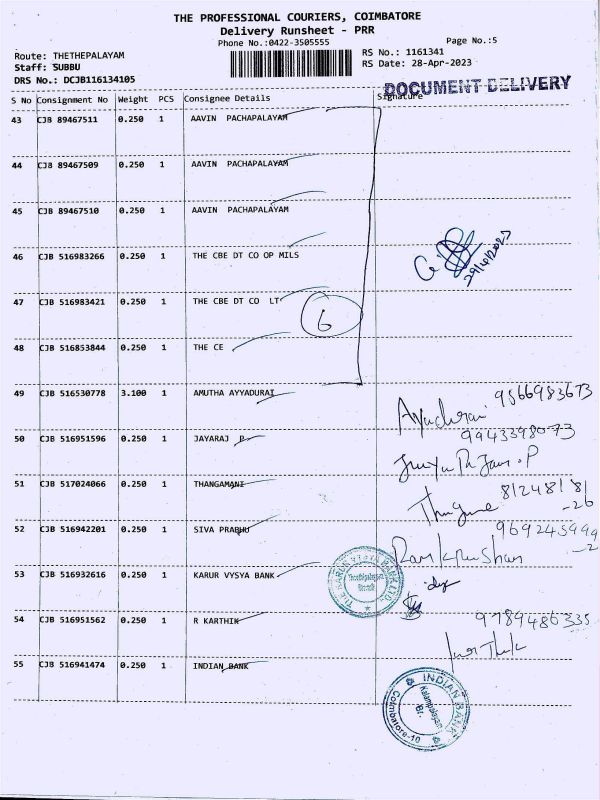 THE PROFESSIONAL COURIERS, COIMBATORE
Delivery Runsheet - PRR
Phone No.:0422-3505555
Page No.:5
Route: THETHEPALAYAM
RS No.: 1161341
Staff: SUBBU
RS Date: 28-Apr-2023
DRS No.: DCJB116134105
DOCUMENT DELIVERY
S No Consignment No Weight PCS Consignee Details Signature
43 CJB 89467511 0.250 1 AAVIN PACHAPALAYAM
44 CJB 89467509 0.250 1 AAVIN PACHAPALAYAM
45 CJB 89467510 0.250 1 AAVIN PACHAPALAYAM
46 CJB 516983266 0.250 1 THE CBE DT CO OP MILS
29/4/2023
47 CJB 516983421 0.250 1 THE CBE DT CO LT
6
48 CJB 516853844 0.250 1 THE CE
49 CJB 516530778 3.100 1 AMUTHA AYYADURAI
9566983673
50 CJB 516951596 0.250 1 JAYARAJ P
9943398073
51 CJB 517024066 0.250 1 THANGAMANI
8124818181
-26
52 CJB 516942201 0.250 1 SIVA PRABHU
Ramkrushan
53 CJB 516932616 0.250 1 KARUR VYSYA BANK
THE KARUR VYSYA BANK LTD.
Theethipalayam
Branch
54 CJB 516951562 0.250 1 R KARTHIK
9789486335
55 CJB 516941474 0.250 1 INDIAN BANK
INDIAN BANK
Kalampalayam
Br.
Coimbatore-10